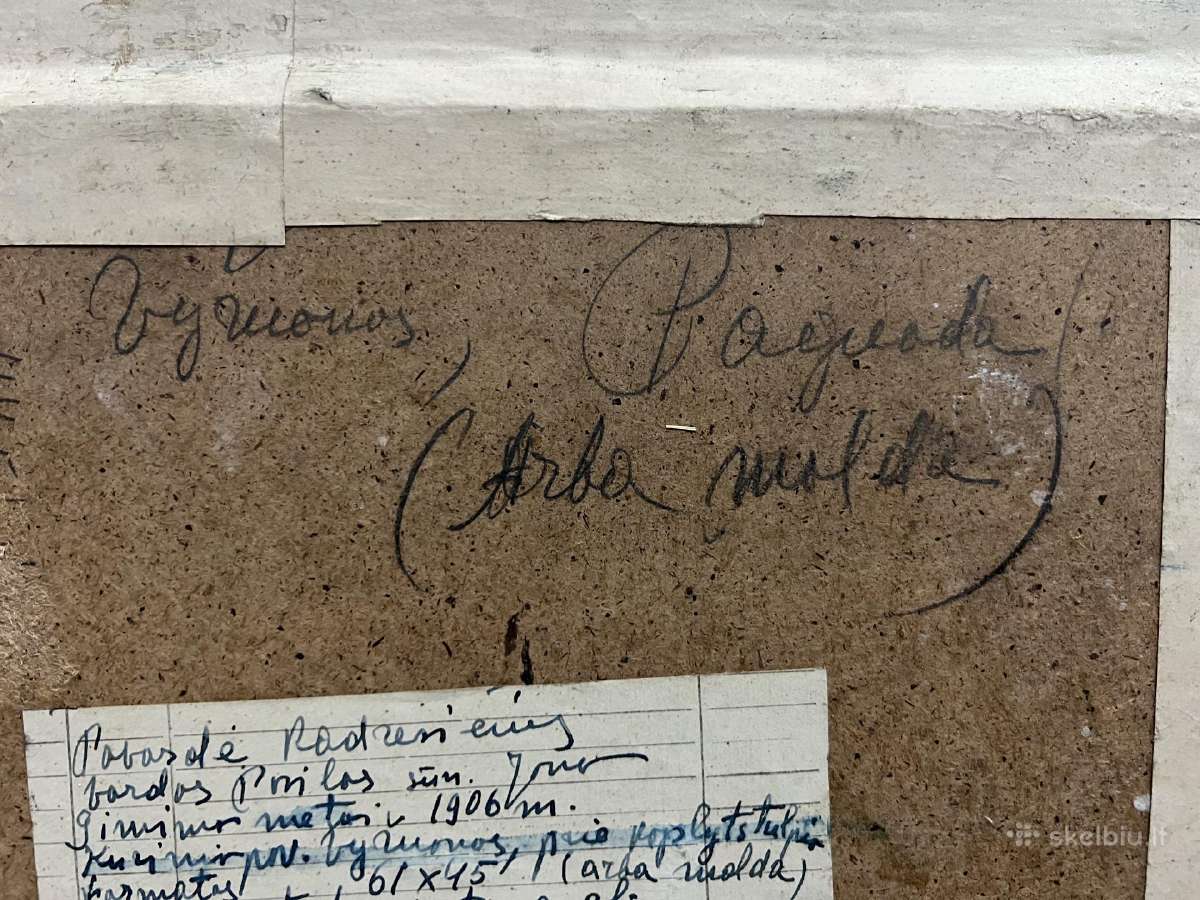 Vyžuonos, Paguoda
(Arba malda)
Pavardė Radzevičius
Vardas Povilas sūn. Jono
Gimimo metai 1906 m.
Kūrinio pav. Vyžuonos, prie koplytstulpių
Formatas 61x45 (arba malda)
skelbiu.lt